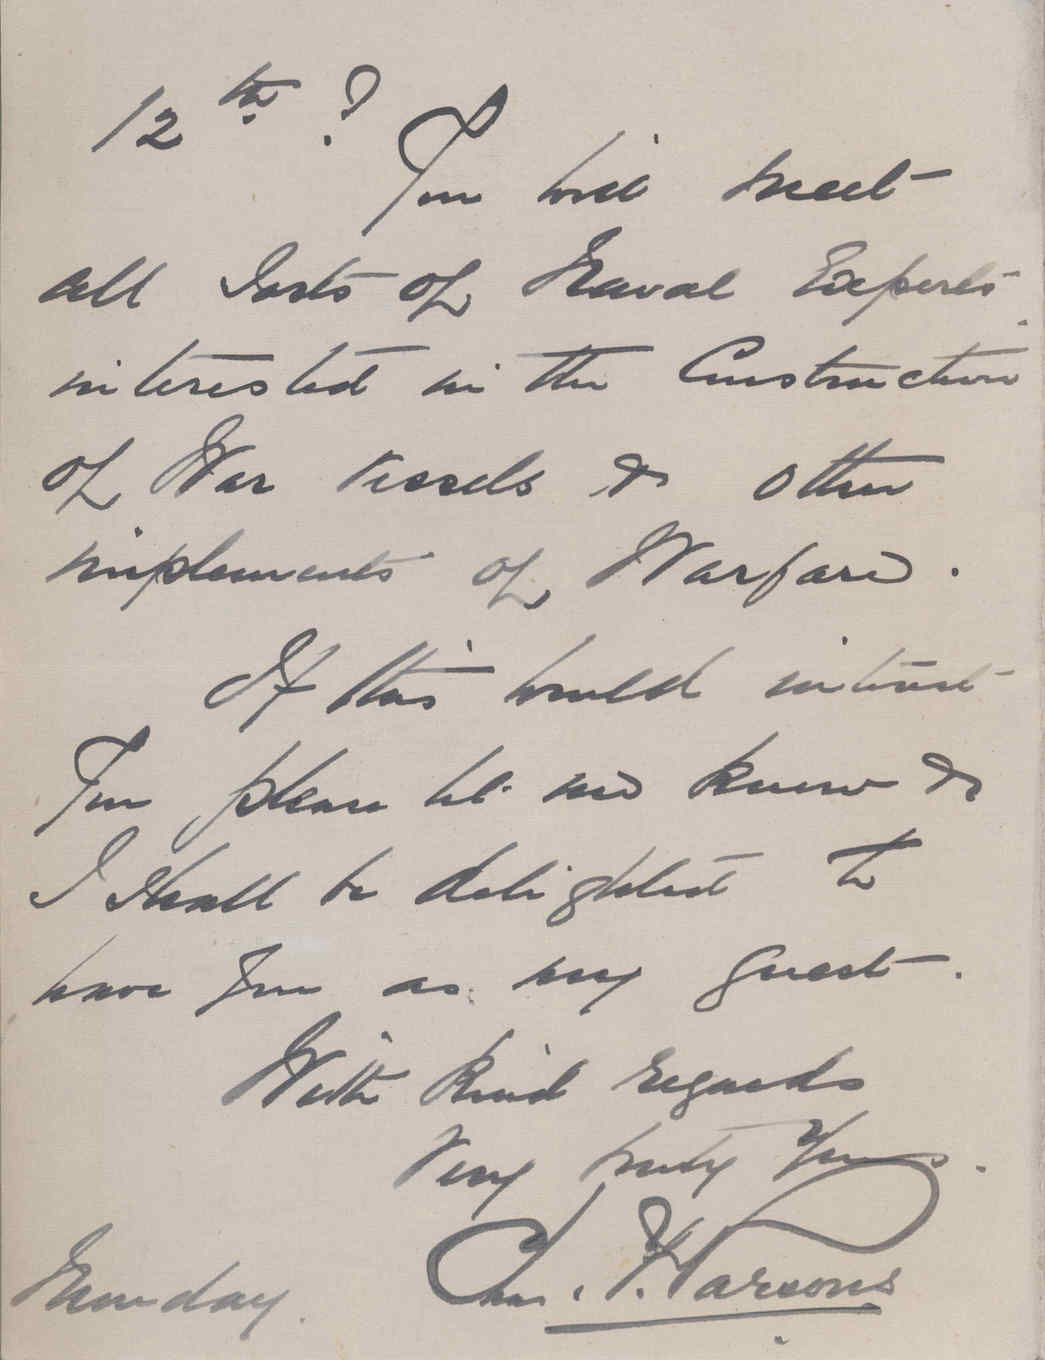 12th ?
You will meet
all sorts of Naval Experts
interested in the Construction
of War Vessels & other
implements of Warfare.
If this would interest
You please let me know &
I shall be delighted to
have you as my guest.
With Kind regards
Very truly Yours.
Chas. F. Parsons